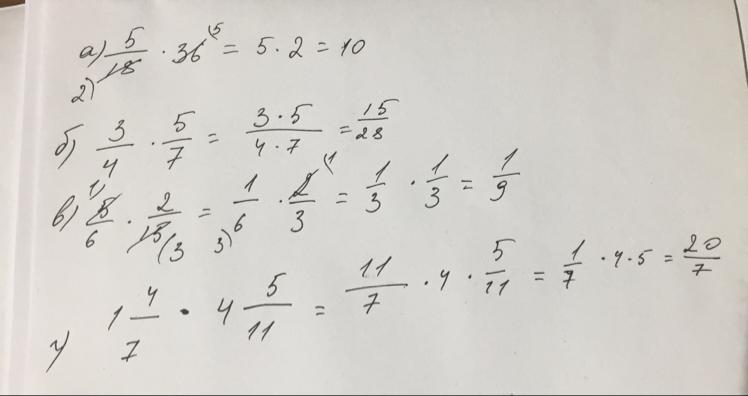 а) 5/18 · 36 (5 = 5 · 2 = 10
2)
б) 3/4 · 5/7 = 3 · 5/4 · 7 = 15/28
в) 1) 5/6 · 2/15 (3 = 1/6 3) · 2 (1/3 = 1/3 · 1/3 = 1/9
г) 1 4/7 · 4 5/11 = 11/7 · 4 · 5/11 = 1/7 · 4 · 5 = 20/7